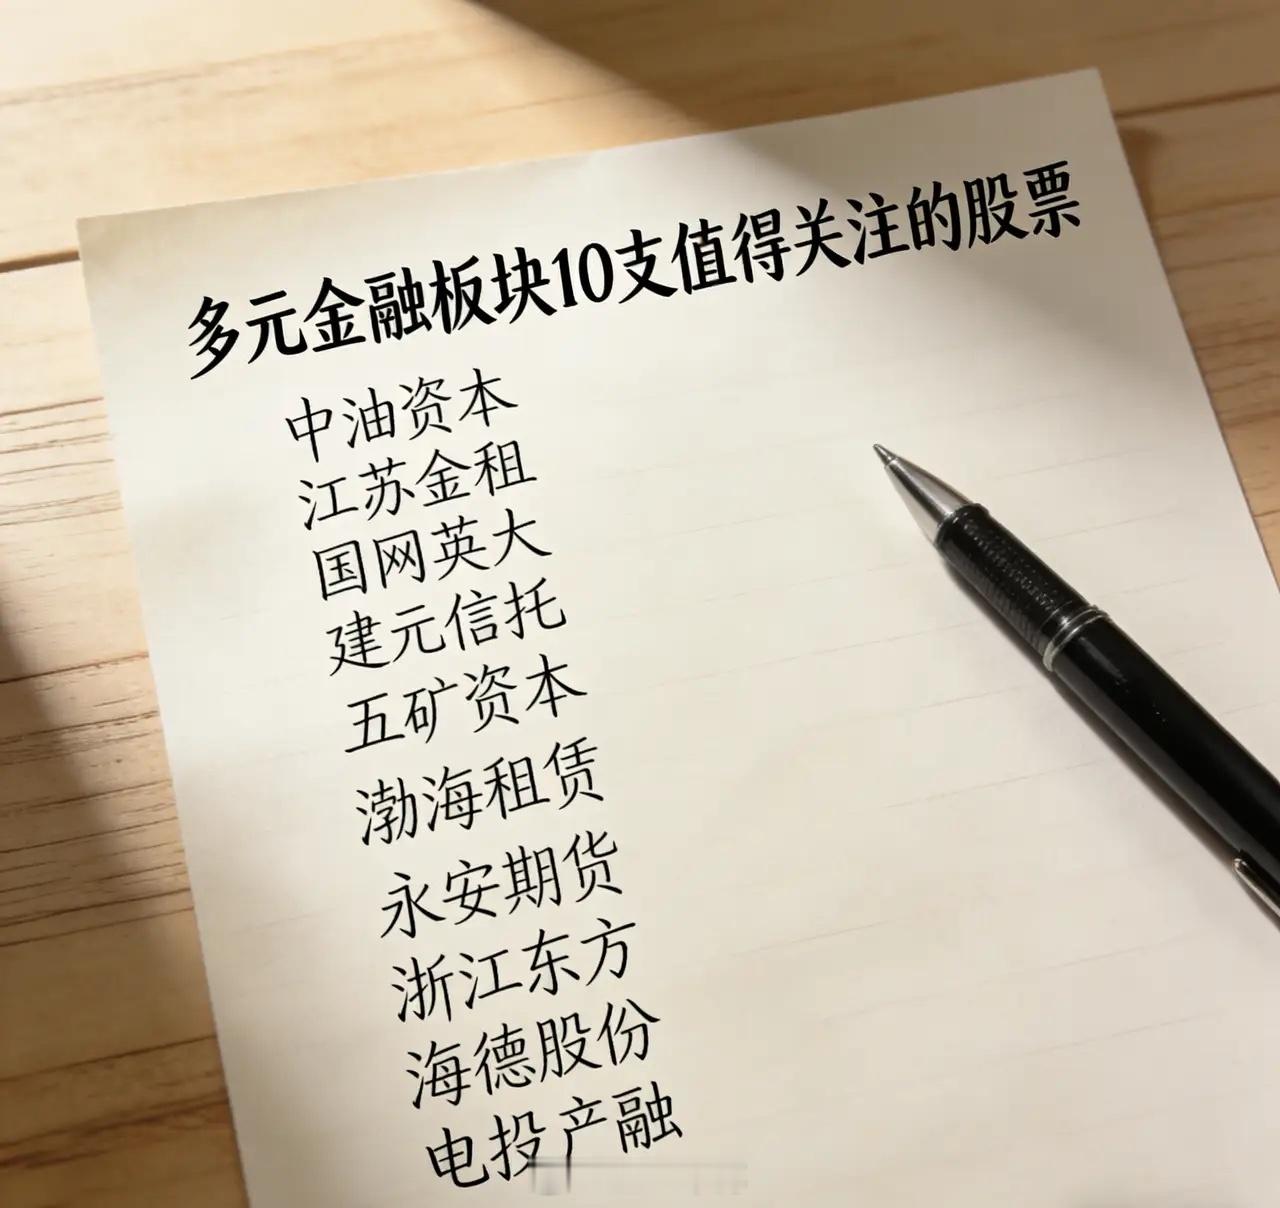 多元金融板块10支值得关注的股票
中油资本
江苏金租
国网英大
建元信托
五矿资本
渤海租赁
永安期货
浙江东方
海德股份
电投产融